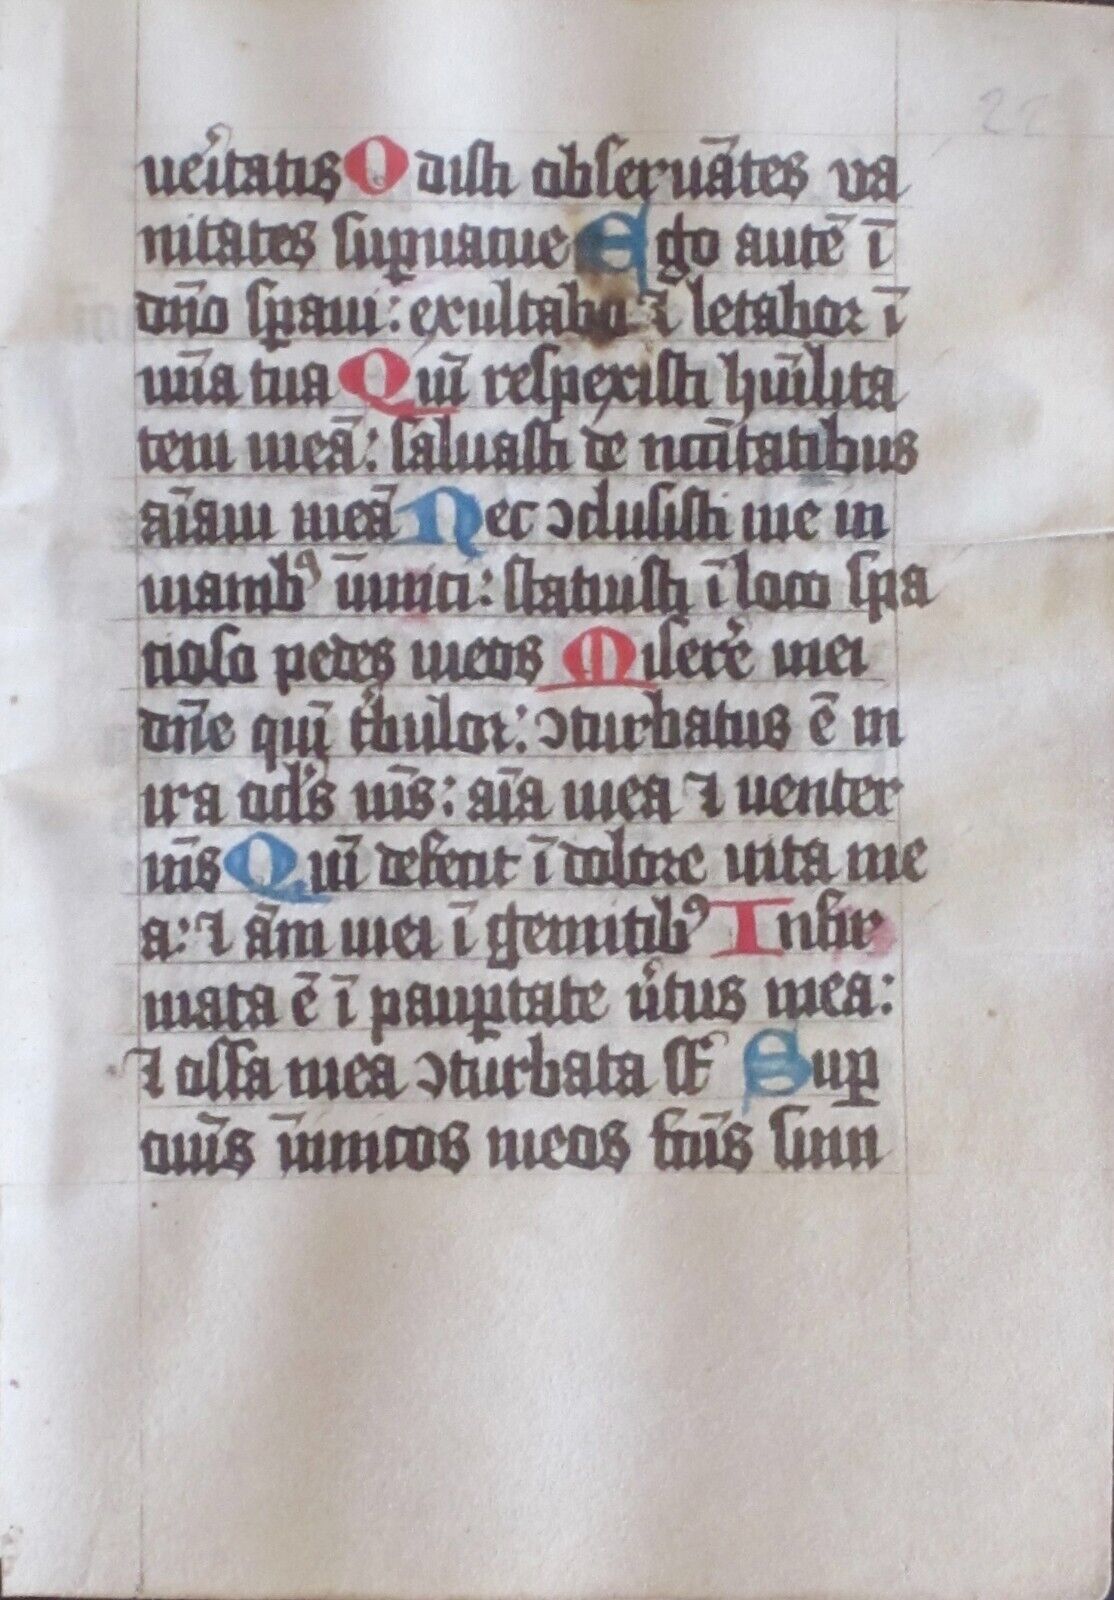 22
ueͥtatis Odisti obseruātes va
nitates suꝑuacue Ego autē ī
dn̄o sꝑaui: exultabo ⁊ letabor ī
mīa tua Qm̄ respexisti hūilita
tem meā: saluasti de nc̄citatibus
aīam meā Nec ↄclusisti me in
manibꝰ īimici: statuisti ī loco spa
tioso pedes meos Miserere mei
dn̄e qm̄ tͥbulor: ↄturbatus ē in
ira ocl̓s m̄s: aīa mea ⁊ uenter
m̄s Qm̄ defecit ī dolore uita me
a: ⁊ ām mei ī gemitibꝰ Infir
mata ē ī pauꝑtate uͥtus mea:
⁊ ossa mea ↄturbata st̄ Suꝑ
om̄s īimicos meos fc̄us sum